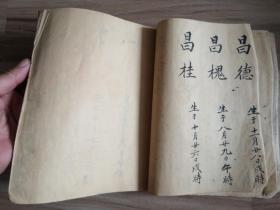 昌德 生于十一月廿八日戌時
昌槐 生于八月廿九日午時
昌桂 生于十月廿六日戌時